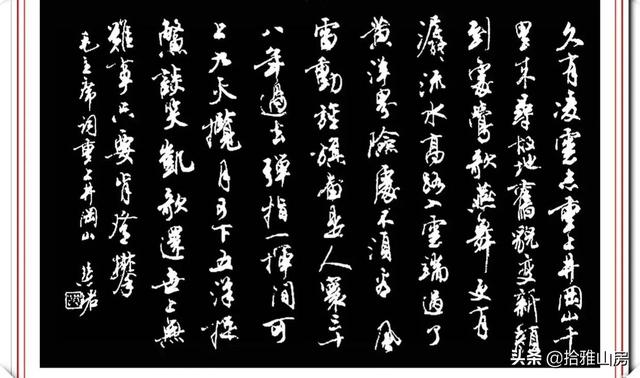 久有凌雲志重上井岡山千
里来尋故地舊貌變新顏
到處鶯歌燕舞更有
潺〻流水高路入雲端過了
黄洋界險處不須看風
雷動旌旗奮是人寰三十
八年過去彈指一揮間可
上九天攬月可下五洋捉
鱉談笑凱歌還世上無
難事只要肯登攀
毛主席詞重上井岡山
头条 @拾雅山房